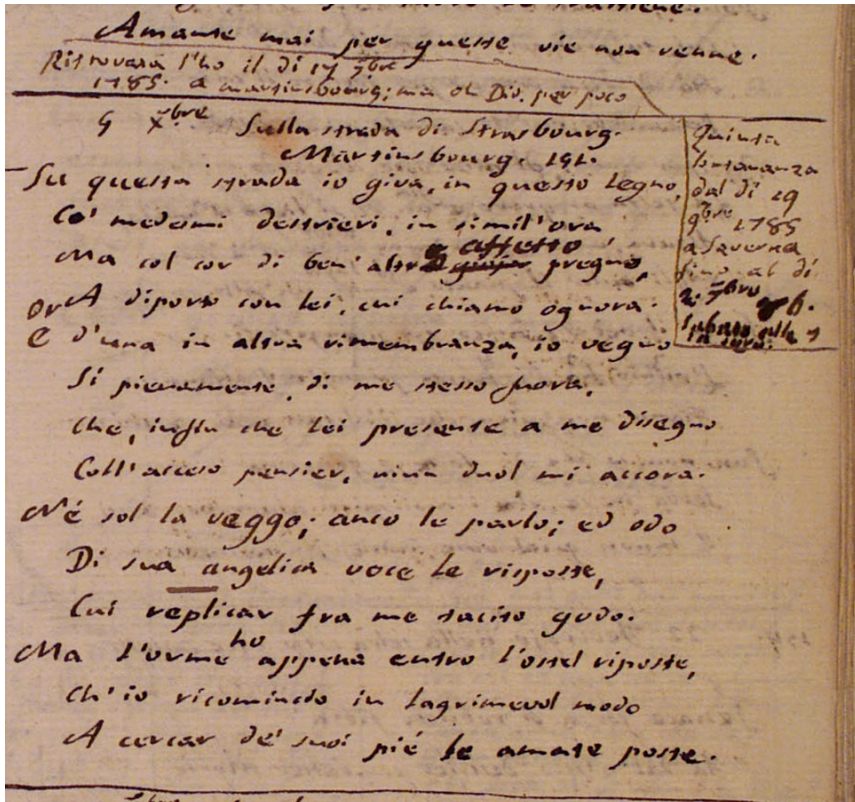 Amante mai per queste vie non venne.
Ritrovata l'ho il dì 17 7bre
1785. a Martinsbourg; ma oh Dio, per poco
9 Xbre Sulla strada di Strasbourg.
Martinsbourg. 191.
Su questa strada io giva, in questo legno,
Co' medesmi destrieri, in simil'ora
Ma col cor di ben' altro affetto pregno,
A diporto con lei, cui chiamo ognora:
Or
E d'una in altra rimembranza, io vegno
Sì pienamente di me stesso fuora,
Che, infin che lei presente a me disegno
Coll'acceso pensier, niun duol mi accora.
Né sol la veggo; anco le parlo; ed odo
Di sua angelica voce le risposte,
Cui replicar fra me tacito godo.
Ma l'orme ho appena entro l'ostel riposte,
Ch'io ricomincio in lagrimevol modo
A cercar de' suoi pié le amate poste.
Quinta
lontananza
dal dì 19
9bre 1785
a Saverna
fino al dì